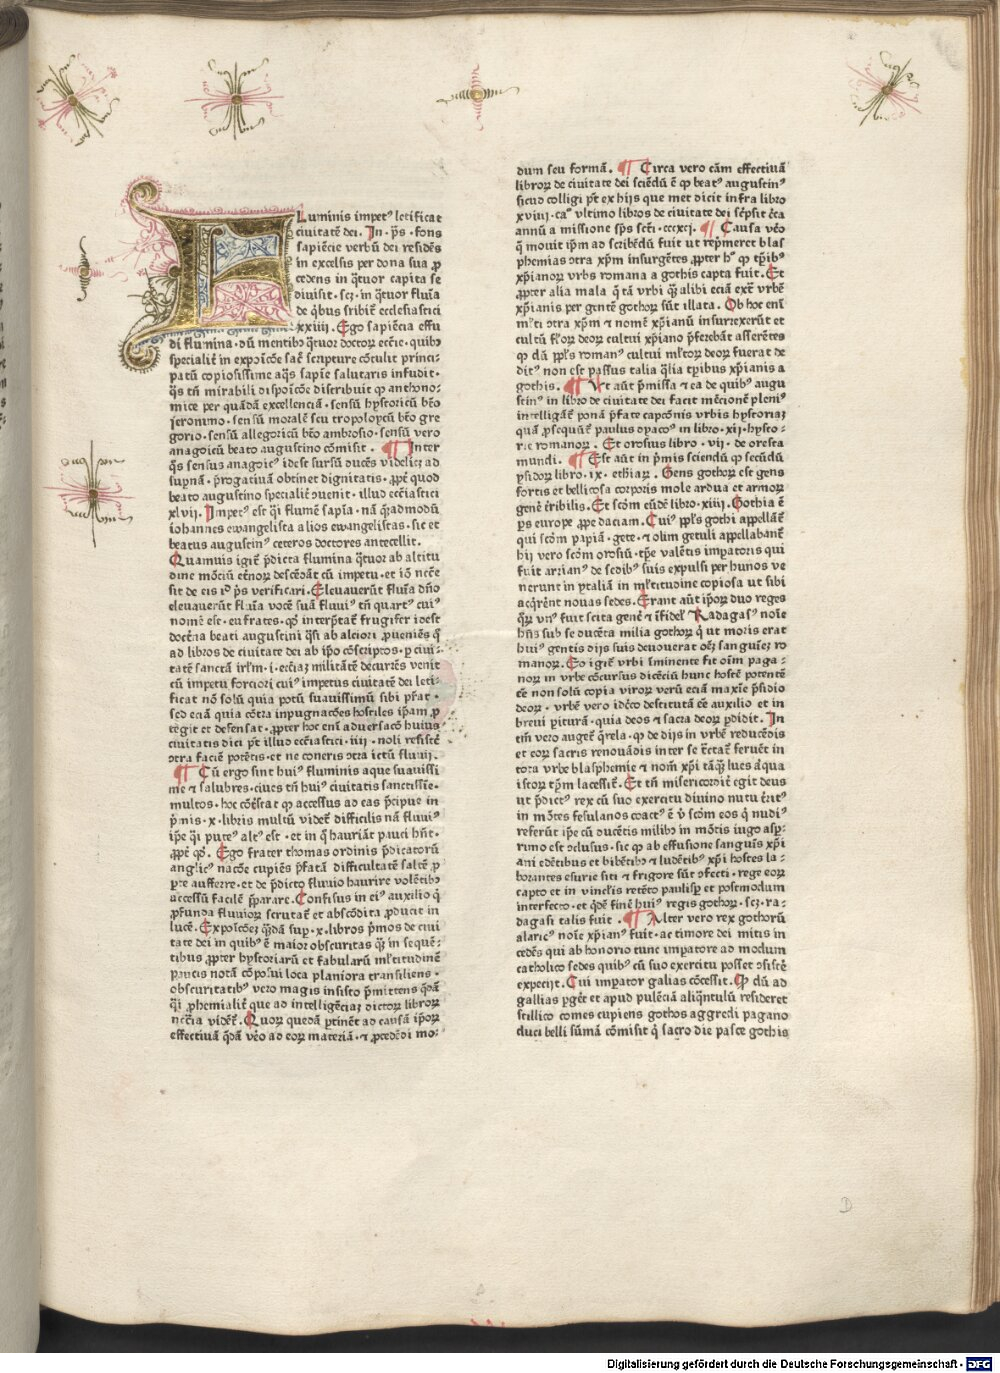 F Luminis impet⁹ letificat
ciuitatē dei. In · ps̄ · fons
sapiēcie verbū dei residēs
in excelsis per dona sua ꝓ
cedens in q̄tuor capita se
diuisit · scꝫ · in q̄tuor fluīa
de q̄bus sribit̄ ecclesiastici
xxiiij. Ego sapiēcia effu
di flumina · dū mentibꝰ q̄tuor doctoꝝ
specialit̄ in expoīcōe
patū copiosissime aq̄s sapīe salutaris infudit ·
q̄s tn̄ mirabili disposicōe distribuit ꝙ anthono-
mice per quādā excellenciā · sensū hystoricū bt̄o
jeronimo · sensū moralē seu tropoloycū bt̄o gre
gorio · sensū allegoricū bt̄o ambrosio · sensū vero
anagoicū beato augustino cōmisit . ¶ Inter
q̄s sensus anagoic⁹ idest sursū ducēs videlicꝫ ad
supnā · p̄rogatiuā obtinet dignitatis · ꝓpt̄ quod
beato augustino specialit̄ ꝯuenit · illud ecc̄iastici
xlvij. Impet⁹ est q̄i flumē sapīa · nā q̄admodū
iohannes ewangelista alios ewangelistas · sic et
beatus augustin⁹ ceteros doctores antecellit.
Quamuis igit̄ p̄dicta flumina q̄tuor ab altitu
dine mōciū et̄noꝝ descēdāt cū impetu · et iō
sit de eis id ps̄ verificari. Eleuauerūt fluīa dn̄o
eleuauerūt fluīa vocē suā fluui⁹ tn̄ quart⁹ cui⁹
nomē est · eufrates · qō interp̄tat̄ frugifer idest
doct̄na beati augustini q̄si ab alciori ꝓueniēs q̄
ad libros de ciuitate dei ab ip̄o cōscriptos · ꝑ ciui-
tatē sanctā irl̄m · i · ecciaꝫ militātē decurrēs venit
cū impetu forciori cui⁹ impetus ciuitatē dei leti-
ficat nō solū quia potū suauissimū sibi
sed eciā quia cōtra inpugnacōes hostiles ip̄am ꝓ
tegit et defensat · ꝓpter hoc enī aduersacō huius
ciuitatis dici pt̄ illud ecc̄iastici · iiij · noli resistē
ꝯtra faciē potētis · et ne coneris ꝯtra ictū fluuij.
¶ Cū ergo sint hui⁹ fluminis aque suauissi
me ⁊ salubres · ciues tn̄ hui⁹ ciuitatis sanctissīe ·
multos · hoc cōstat ꝙ accessus ad eas p̄cipue in
p̄mis · x · libris multū videt̄ difficilis nā fluui⁹
ip̄e q̄i pute⁹ alt⁹ est · et in q̄ hauriāt pauci hn̄t ·
ꝓpt̄ qō. Ego frater thomas ordinis p̄dicatorū
anglic⁹ nacōe cupiēs p̄fatā difficultatē saltē ꝓ
ꝑte aufferre · et de p̄dicto fluuio haurire volētibꝰ
accessū facilē p̄parare. Confisus in ei⁹ auxilio q̄
ꝓfunda fluuioꝝ scrutat̄ et abscōdita ꝓducit in
lucē. Expoīcōeꝫ q̄dā sup · x · libros p̄mos de ciui
tate dei in quib⁹ ē maior obscuritas q̄ꝫ in sequē-
tibus ꝓpter hystoriarū et fabularū ml̄titudinē
paucis notā cōposui loca planiora transiliens ·
obscuritatib⁹ vero magis insisto p̄mittens q̄dā
q̄i ꝓhemialit̄ que ad intelligēciaꝫ dictoꝝ libroꝝ
nēcc̄ia vidēt̄. Quoꝝ quedā ꝑtinēt ad causā ip̄oꝝ
effectiuā q̄dā v̄o ad eoꝝ materiā · ⁊ ꝓcedēdi mo-
dum seu formā. ¶ Circa vero cām effectiuā
libroꝝ de ciuitate dei sciēdū ē ꝙ beat⁹ augustin⁹
sicud colligi pt̄ ex hijs que met dicit infra libro
xviij · ca° vltimo libros de ciuitate dei
annū a missione sp̄s scti · ccccxcj. ¶ Causa v̄o
q̄ mouit ip̄m ad scribēdū fuit ut rep̄meret blas
phemias ꝯtra xp̄m insurgētes ꝓpter h° ꝙ tp̄ibꝰ
xp̄ianoꝝ vrbs romana a gothis capta fuit. Et
ꝓpter alia mala q̄ tā vrbi q̄ꝫ alibi eciā ext̄ vrbē
xp̄ianis per gentē gothoꝝ sūt illata. Ob hoc enī
ml̄ti ꝯtra xp̄m ⁊ nomē xp̄ianū insurrexerūt et
cultū fl̄oꝝ deoꝝ cultui xp̄iano p̄ferebāt asserētes
ꝙ dū ppl̄s roman⁹ cultui ml̄toꝝ deoꝝ fuerat de
dit⁹ non est passus talia q̄lia tp̄ibus xp̄ianis a
gothis. ¶ Ut aūt p̄missa ⁊ ea de quib⁹ augu
stin⁹ in libro de ciuitate dei facit mēcionē pleni⁹
intelligāt̄ ponā p̄fate capcōnis vrbis hystoriaꝫ
quā ꝓsequūt̄ paulus dyaco⁹ in libro · xij · hysto-
rie romanoꝝ. Et orosius libro · vij · de oresta
mundi. ¶ Est aūt in p̄mis sciendū ꝙ secūdū
ysidoꝝ libro · ix · ethiaꝝ. Gens gothoꝝ est gens
fortis et bellicosa corporis mole ardua et armoꝝ
genē t̄ribilis. Et scōm eūdē libro · xiiij. Gothia ē
ꝑs europe ꝓpe daciam. Cui⁹ ppl̄s gothi appellāt̄
qui scōm papiā · gete · ⁊ olim getuli appellabant̄
hij vero scōm orosiū · tp̄e valētis imp̄atoris qui
fuit arrian⁹ de sedib⁹ suis expulsi per hunos ve
nerunt in ytaliā in ml̄titudine copiosa ut sibi
aq̄rerēt nouas sedes. Erant aūt ip̄oꝝ duo reges
q̄ꝝ vn⁹ fuit scita genē ⁊ īfidel⁹ Radagas⁹ noīe
hn̄s sub se ducēta milia gothoꝝ q̄ ut moris erat
hui⁹ gentis dijs suis deuouerat oēꝫ sanguīeꝫ ro
manoꝝ. Eo igit̄ vrbi iminente fit oīm paga-
noꝝ in vrbe cōcursus dicēciū hunc hostē potentē
ēe non solū copia viroꝝ verū eciā maxīe p̄sidio
deoꝝ · vrbē vero idcōo destitutā ēe auxilio et in
breui pituꝝā · quia deos ⁊ sacra deoꝝ ꝑdidit. In
tm̄ vero auget̄ q̄rela · ꝙ de dijs in vrbē reducēdis
et eoꝝ sacris renouādis inter se t̄ctāt̄ feruēt in
tota vrbe blasphemie ⁊ nom̄ xp̄i tāq̄ꝫ lues
istoꝝ tp̄m lacessit̄. Et tn̄ misericordit̄ egit deus
ut p̄dict⁹ rex cū suo exercitu diuino nutu t̄rit⁹
in mōtes fesulanos coact⁹ ē v̄ scōm eos q̄ nudi⁹
referūt ip̄e cū ducētis milibꝰ in mōtis iugo asp̄-
rimo est ꝯclusus · sic ꝙ ab effusione sanguīs xp̄i
ani edētibus et bibētibꝰ ⁊ ludētibꝰ xp̄i hostes la-
borantes esurie siti ⁊ frigore sūt ꝯfecti · rege eoꝝ
capto et in vinclis retēto paulisꝑ et postmodum
interfecto · et q̄dē finē hui⁹ regis gothoꝝ · scꝫ · ra-
dagasi talis fuit . ¶ Alter vero rex gothorū
alaric⁹ noīe xp̄ian⁹ fuit · ac timore dei mitis in
cedēs qui ab honorio tunc imp̄atore ad modum
catholico sedes quib⁹ cū suo exercitu posset ꝯsistē
expecijt. Cui imp̄ator galias cōcessit. Qd̄ dū ad
gallias ꝑget̄ et apud pulēciā aliq̄ntulū resideret
stillico comes cupiens gothos aggredi pagano
duci belli sūmā cōmisit q̄ sacro die pasce gothis
D
Digitalisierung gefördert durch die Deutsche Forschungsgemeinschaft - DFG